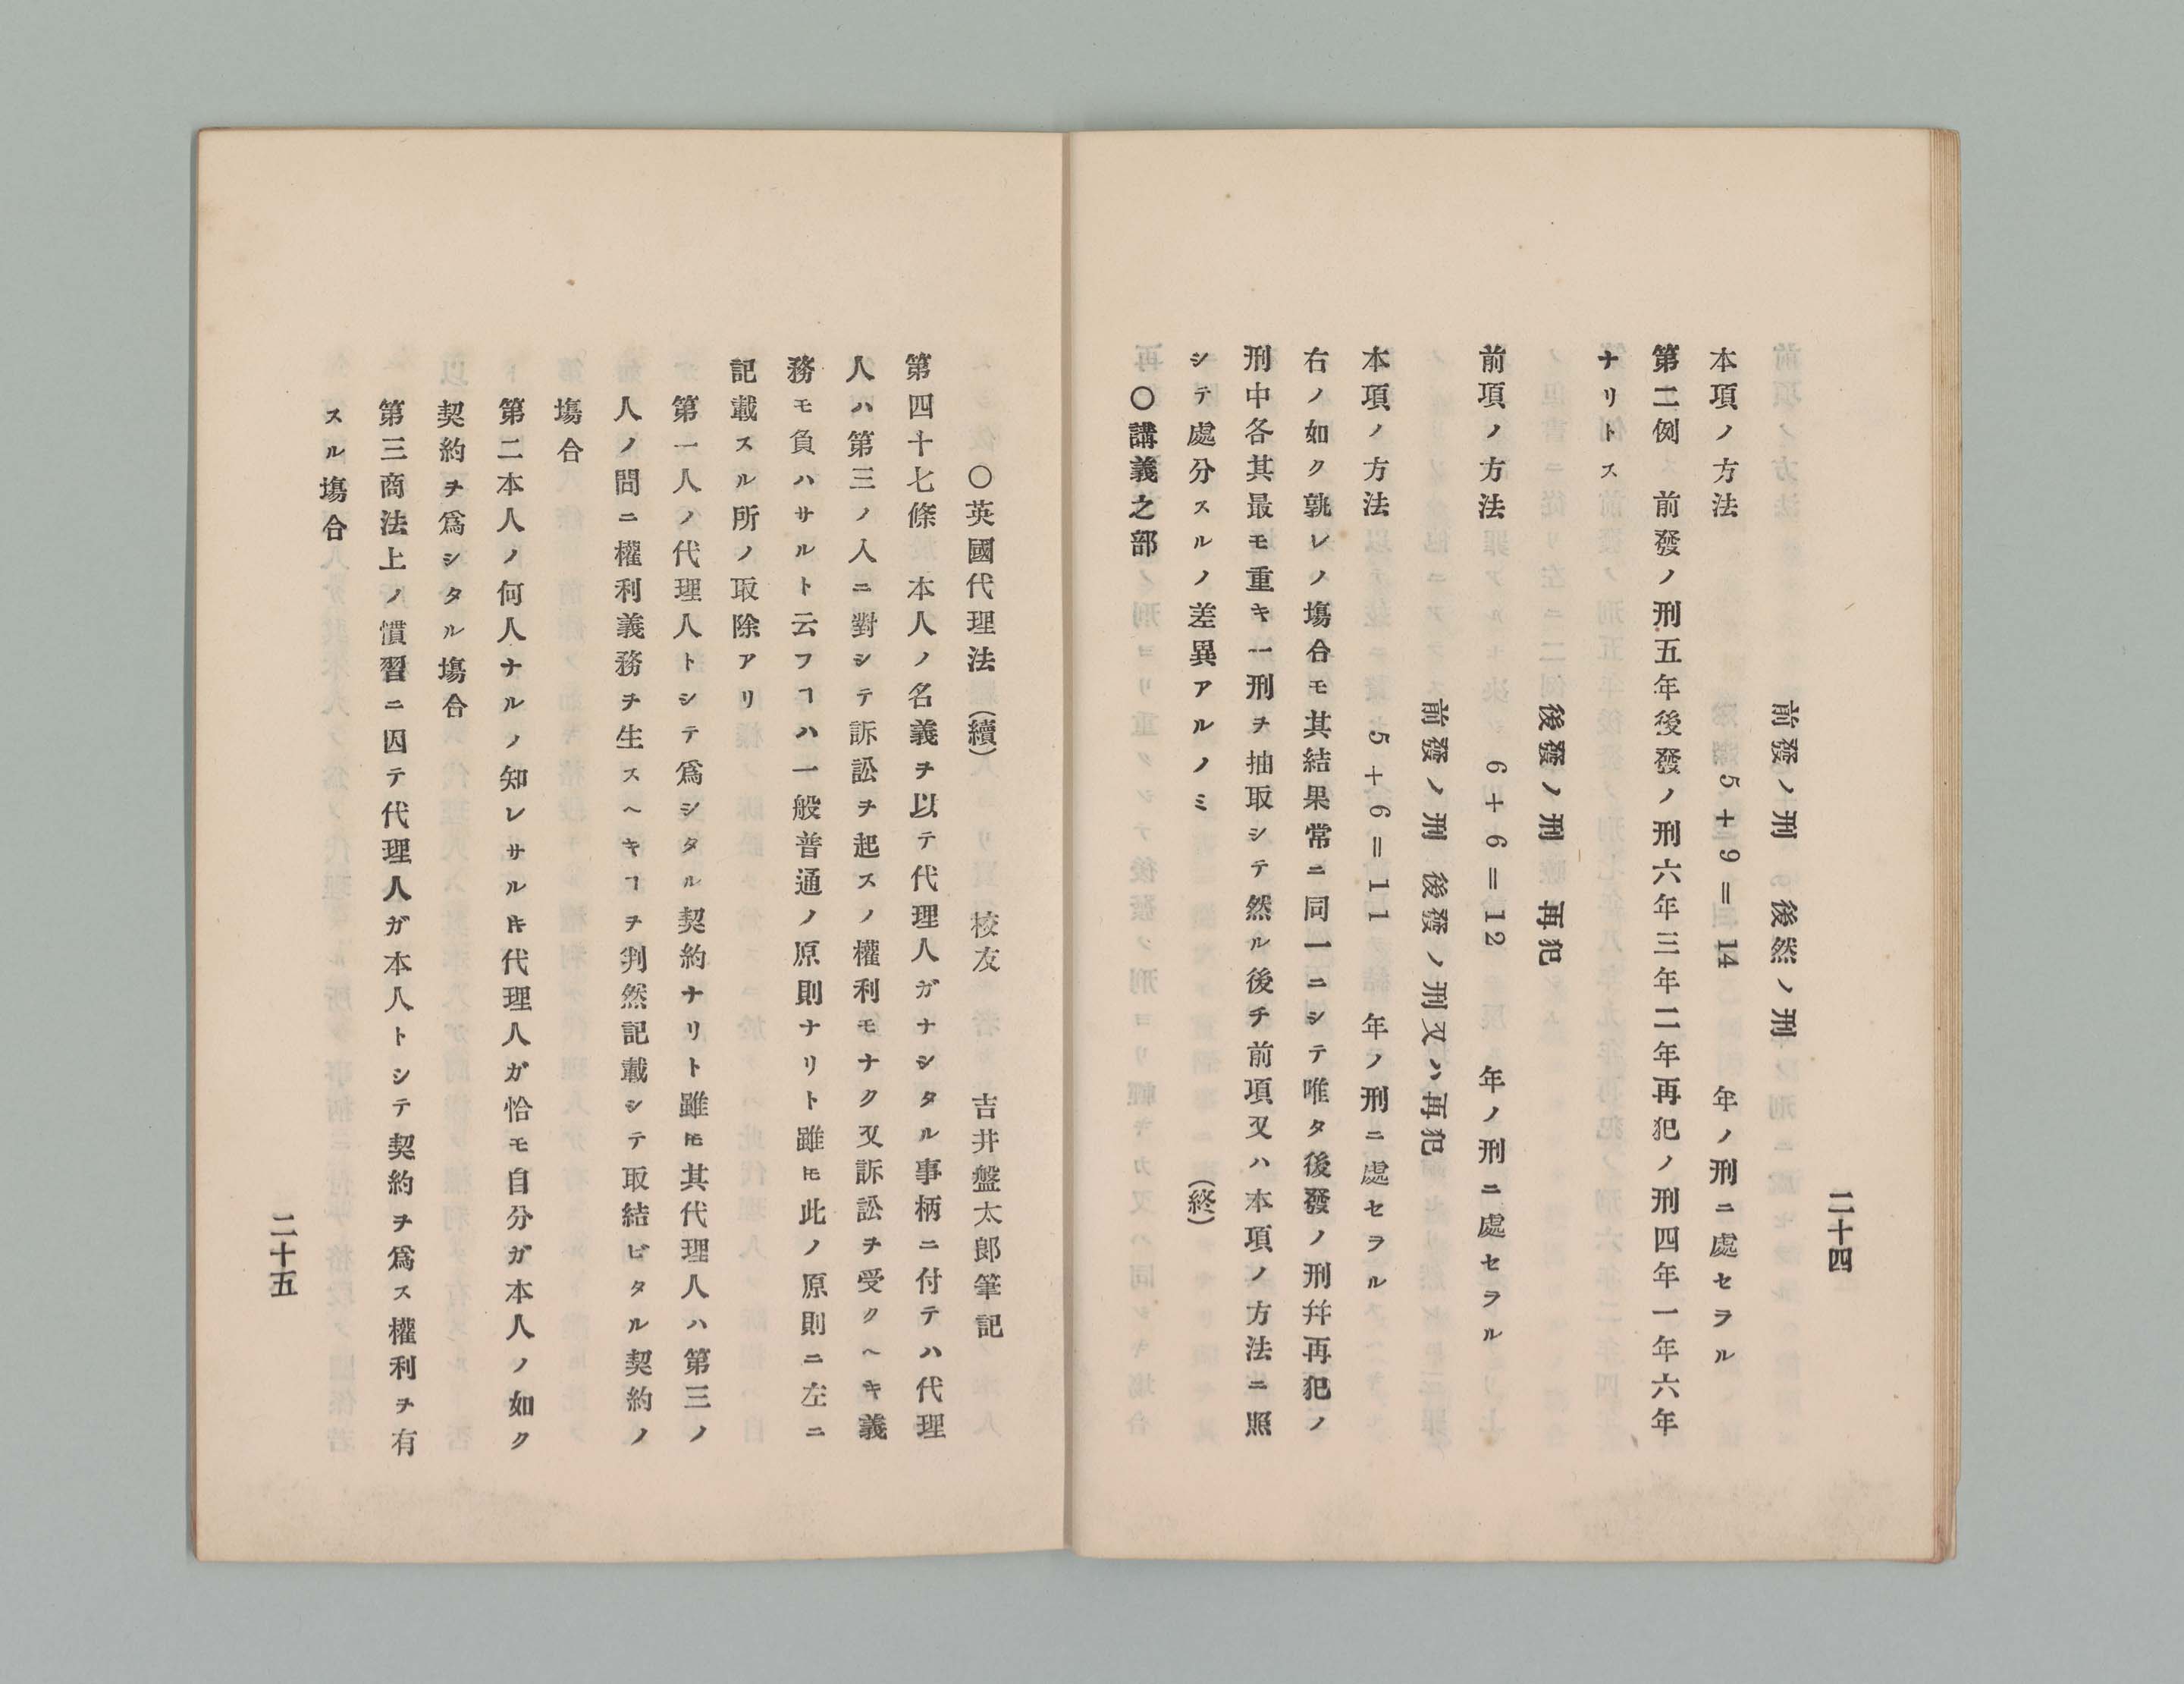 二十四
前發ノ刑 後然ノ刑
本項ノ方法 5+9=14 年ノ刑ニ處セラル
第二例 前發ノ刑五年後發ノ刑六年三年二年再犯ノ刑四年一年六年
ナリトス
後發ノ刑 再犯
前項ノ方法 6+6=12 年ノ刑ニ處セラル
前發ノ刑 後發ノ刑又ハ再犯
本項ノ方法 5+6=11 年ノ刑ニ處セラル
右ノ如ク孰レノ塲合モ其結果常ニ同一ニシテ唯タ後發ノ刑幷再犯ノ
刑中各其最モ重キ一刑ヲ抽取シテ然ル後チ前項又ハ本項ノ方法ニ照
シテ處分スルノ差異アルノミ (終)
〇講義之部
〇英國代理法(續) 校友 吉井盤太郎筆記
第四十七條 本人ノ名義ヲ以テ代理人ガナシタル事柄ニ付テハ代理
人ハ第三ノ人ニ對シテ訴訟ヲ起スノ權利モナク又訴訟ヲ受クヘキ義
務モ負ハサルト云フヿハ一般普通ノ原則ナリト雖𪜈此ノ原則ニ左ニ
記載スル所ノ取除アリ
第一人ノ代理人トシテ爲シタル契約ナリト雖𪜈其代理人ハ第三ノ
人ノ間ニ權利義務ヲ生スヘキヿヲ判然記載シテ取結ビタル契約ノ
塲合
第二本人ノ何人ナルノ知レサルキ代理人ガ恰モ自分ガ本人ノ如ク
契約ヲ爲シタル塲合
第三商法上ノ慣習ニ因テ代理人ガ本人トシテ契約ヲ爲ス權利ヲ有
スル塲合
二十五